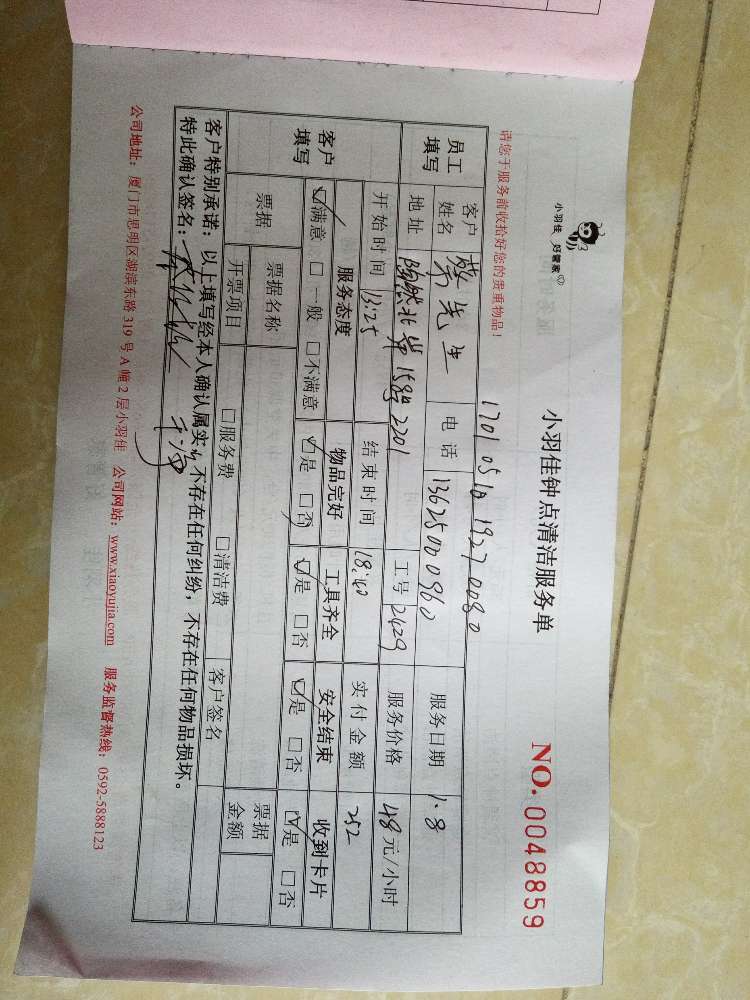 小羽佳 好管家
小羽佳钟点清洁服务单
NO. 0048859
请您于服务前收拾好您的贵重物品！
1701051019270080
员工填写 客户姓名 蔡先生 电话 13625000960 服务日期 1.8
地址 陶然北岸 158号2201 工号 2429 服务价格 48元/小时
客户填写 开始时间 13:25 结束时间 18:40 实付金额 252
服务态度 物品完好 工具齐全 安全结束 收到卡片
☑满意 □一般 □不满意 ☑是 □否 ☑是 □否 ☑是 □否 ☑是 □否
票据 票据名称 □服务费 □清洁费 客户签名 票据金额
开票项目
客户特别承诺：以上填写经本人确认属实，不存在任何纠纷，不存在任何物品损坏。
特此确认签名：
公司地址：厦门市思明区湖滨东路319号A幢2层小羽佳 公司网站：www.xiaoyujia.com 服务监督热线：0592-5888123